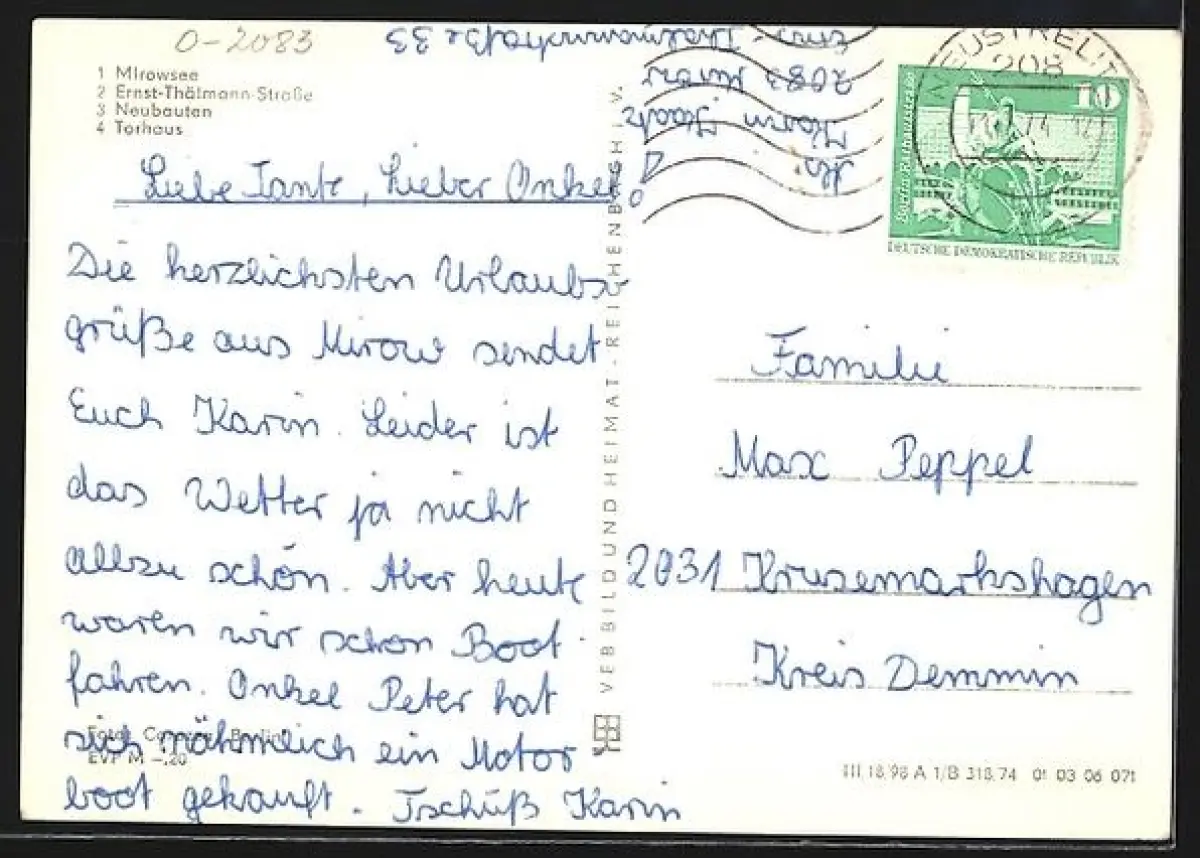 O-2083
1 Mirowsee
2 Ernst-Thälmann-Straße
3 Neubauten
4 Torhaus
Liebe Tante, Lieber Onkel!
Die herzlichsten Urlaubs-
grüße aus Mirow sendet
Euch Karin. Leider ist
das Wetter ja nicht
allzu schön. Aber heute
waren wir schon Boot
fahren. Onkel Peter hat
sich nähmlich ein Motor
boot gekauft. Tschüß Karin
Foto: Berlin
EVP M -,20
VEB BILD UND HEIMAT · REICHENBACH I. V.
Abs. Karin
2083 Mirow
Ernst-Thälmannstraße 33
NEUSTRELITZ
208
74
10
DEUTSCHE DEMOKRATISCHE REPUBLIK
Familie
Max Peppel
2031 Krusemarkshagen
Kreis Demmin
III 18/98 A 1/B 318/74 01 03 06 071